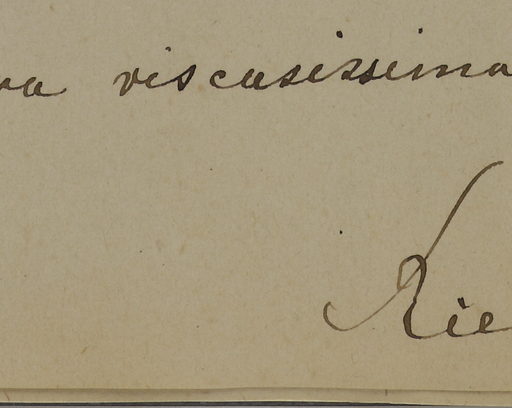 va viscasissima
Rie